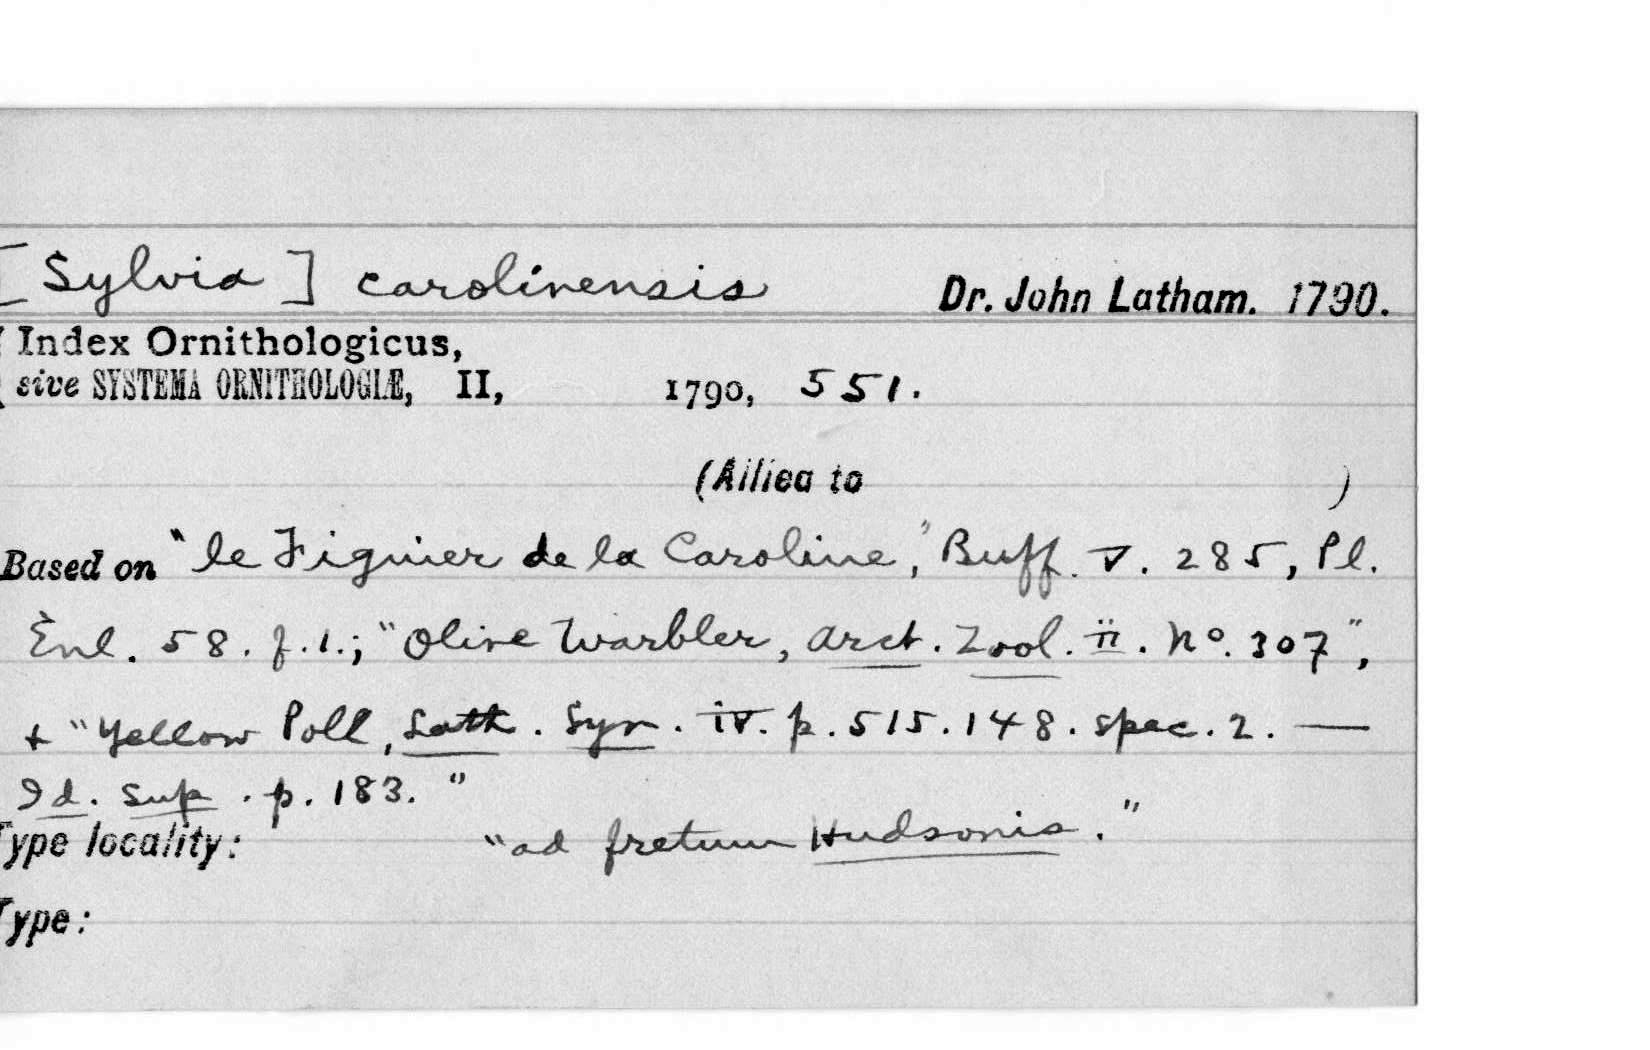 [Sylvia] carolinensis Dr. John Latham. 1790.
Index Ornithologicus,
sive SYSTEMA ORNITHOLOGIÆ, II, 1790, 551.
(Allied to )
Based on "le Figuier de la Caroline," Buff. V. 285, Pl.
Enl. 58. f.1.; "Olive Warbler, Arct. Zool. ii. No. 307",
+ "Yellow Poll, Lath. Syn. iv. p. 515. 148. spec. 2. —
Id. Sup. p. 183."
Type locality: "ad fretum Hudsonis."
Type: